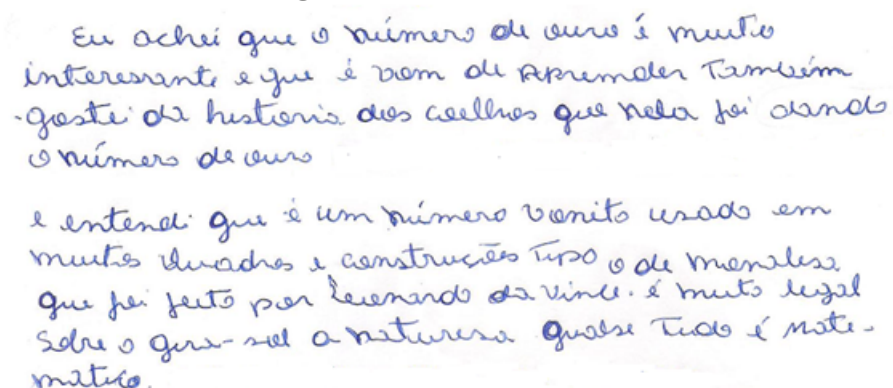 Eu achei que o número de ouro é muito
interessante e que é bom de Aprender Também
gostei da historia dos coelhos que nela foi dando
o número de ouro
e entendi que é um número bonito usado em
muitos quadros e construções Tipo o de monalesa
que foi feito por Leonardo da vince. é muto legal
sobre o gira-sol a naturesa quase Tudo é mate-
mático.